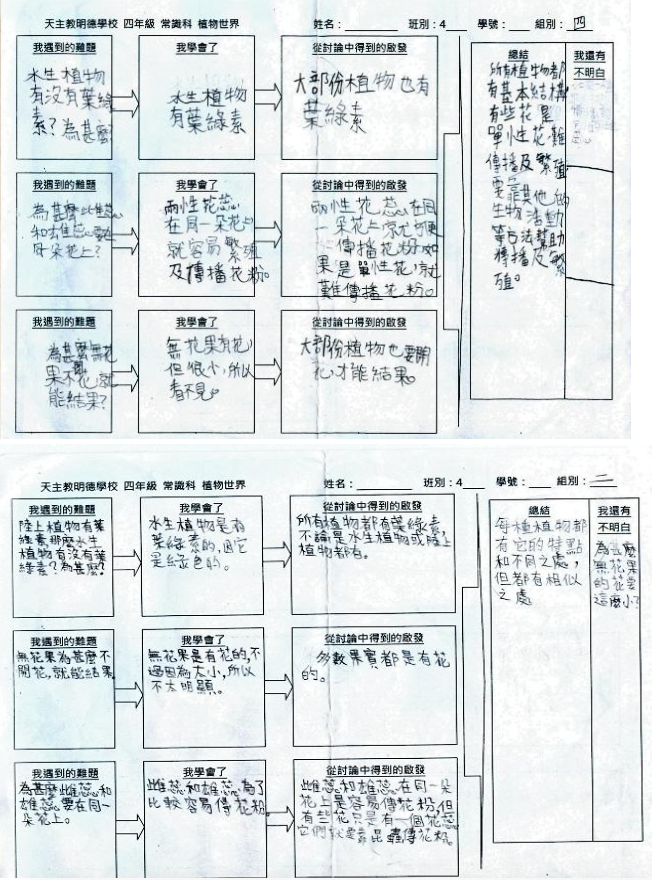 天主教明德學校 四年級 常識科 植物世界 姓名： 班別：4 學號： 組別：四
我遇到的難題
水生植物
有沒有葉綠
素？為甚麼
我學會了
水生植物
有葉綠素
從討論中得到的啟發
大部份植物也有
葉綠素
我遇到的難題
為甚麼雌蕊
和雄蕊要在
朵花上？
我學會了
兩性花蕊
在同一朵花上
就容易繁殖
及傳播花粉。
從討論中得到的啟發
兩性花蕊在同
一朵花上
傳播花粉，如
果是單性花，就
難傳播花粉。
我遇到的難題
為甚麼無花
果不花就
能結果？
我學會了
無花果有花，
但很小，所以
看不見。
從討論中得到的啟發
大部份植物也要開
花，才能結果。
總結
所有植物都
有基本結構
有些花是
單性花，難
傳播及繁殖
要靠其他的
生物活動
等方法幫助
傳播及繁
殖。
我還有
不明白
天主教明德學校 四年級 常識科 植物世界 姓名： 班別：4 學號： 組別：二
我遇到的難題
陸上植物有葉
綠素，那麼水生
植物有沒有葉
綠素？為甚麼？
我學會了
水生植物是有
葉綠素的，因它
是綠色的。
從討論中得到的啟發
所有植物都有葉綠素，
不論是水生植物或陸上
植物都有。
我遇到的難題
無花果為甚麼不
開花，就能結果
我學會了
無花果是有花的，不
過因為太小，所以
不太明顯。
從討論中得到的啟發
多數果實都是有花
的。
我遇到的難題
為甚麼雌蕊和
雄蕊要在同一
朵花上。
我學會了
雌蕊和雄蕊為了
比較容易傳花粉。
從討論中得到的啟發
雌蕊和雄蕊在同一朵
花上是容易傳花粉，但
有些花只是有一個花蕊
它們就要靠昆蟲傳花粉。
總結
每種植物都
有它的特點
和不同之處，
但都有相似
之處
我還有
不明白
為甚麼
無花果
的花要
這麼小？